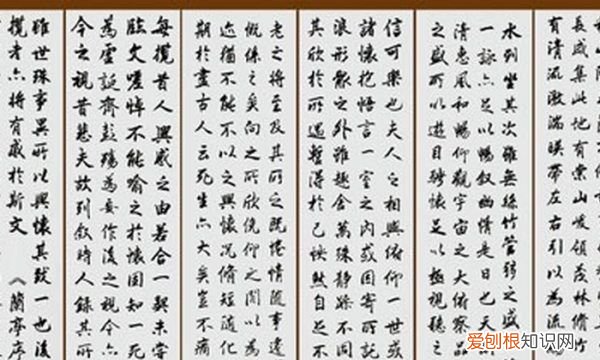 長咸集此地有崇山峻領茂林脩
有清流激湍暎帶左右引以為流
水列坐其次雖無絲竹管弦之盛
一詠亦足以暢叙幽情是日也天
清惠風和暢仰觀宇宙之大俯察品
之盛所以遊目騁懷足以極視聽之
信可樂也夫人之相與俯仰一世或
諸懷抱悟言一室之內或因寄所託
浪形骸之外雖趣舍萬殊靜躁不同
其欣於所遇暫得於己怏然自足不
老之將至及其所之既惓情隨事遷
慨係之矣向之所欣俛仰之間以為
迹猶不能不以之興懷況脩短隨化
期於盡古人云死生亦大矣豈不痛
每攬昔人興感之由若合一契未嘗
臨文嗟悼不能喻之於懷固知一死
為虛誕齊彭殤為妄作後之視今亦
今之視昔悲夫故列叙時人錄其所
雖世殊事異所以興懷其致一也後
攬者亦將有感於斯文 《蘭亭序
爱刨根知识网